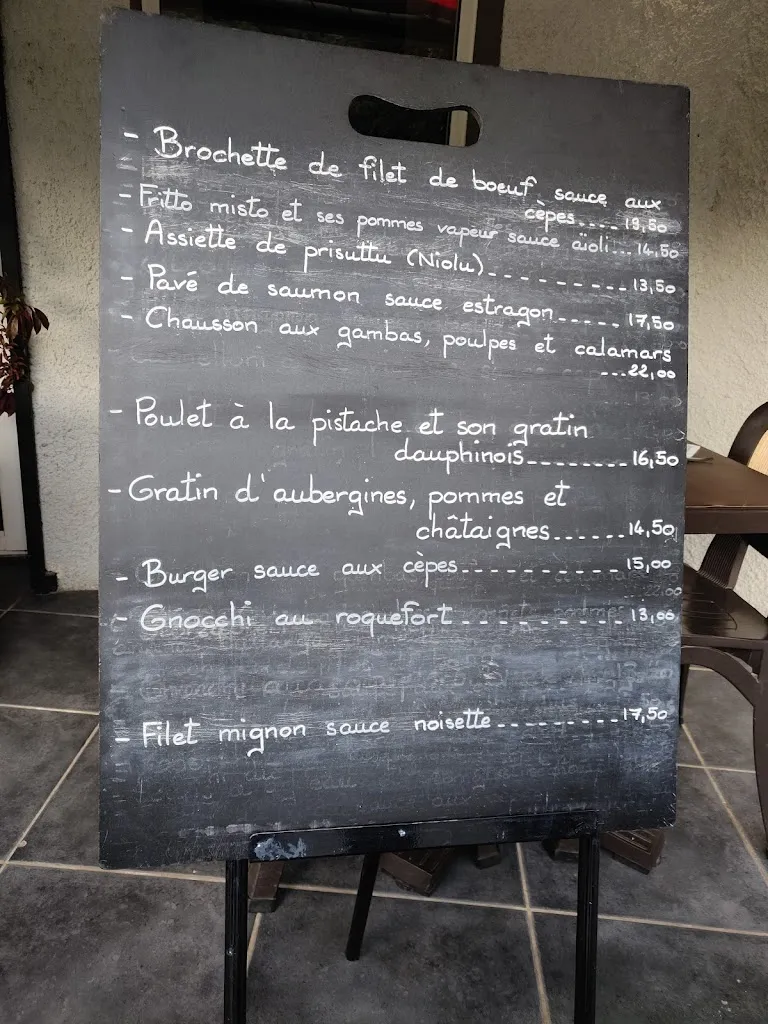 - Brochette de filet de boeuf sauce aux
cèpes.... 19,50
- Fritto misto et ses pommes vapeur sauce aïoli... 14,50
- Assiette de prisuttu (Niolu)......... 13,50
- Pavé de saumon sauce estragon..... 17,50
- Chausson aux gambas, poulpes et calamars
...22,00
- Poulet à la pistache et son gratin
dauphinois........ 16,50
- Gratin d'aubergines, pommes et
châtaignes...... 14,50
- Burger sauce aux cèpes.......... 15,00
- Gnocchi au roquefort.......... 13,00
- Filet mignon sauce noisette......... 17,50